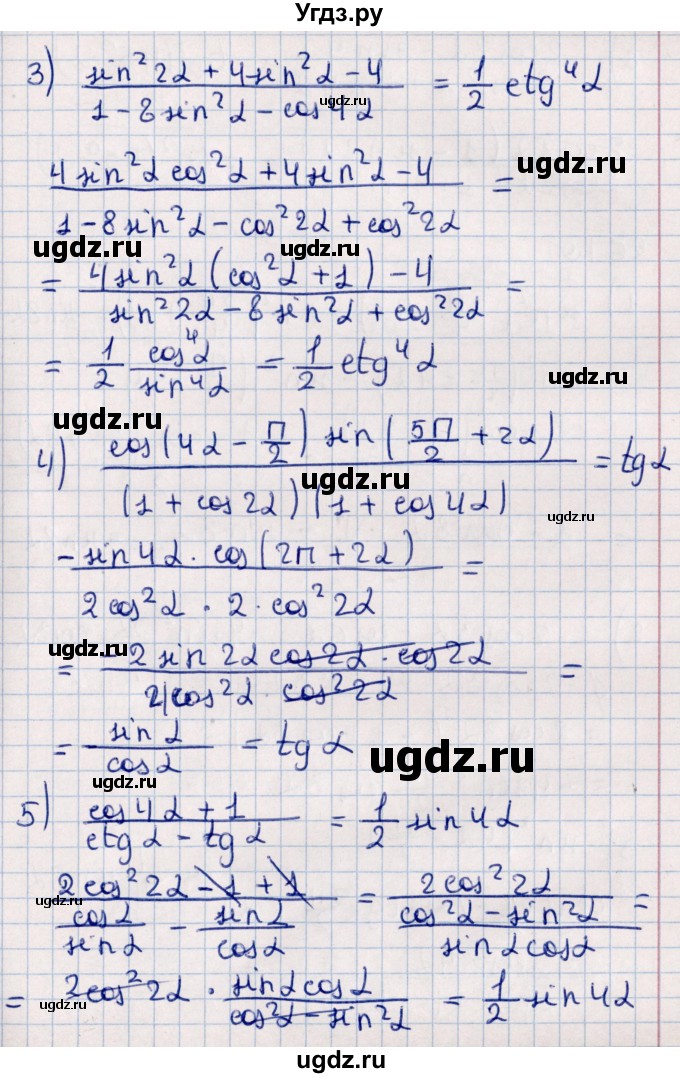 Угдз.ру
3) (sin²2α + 4sin²α - 4)/(1 - 8sin²α - cos4α) = 1/2 ctg⁴α
ugdz.ru
(4sin²α cos²α + 4sin²α - 4)/(1 - 8sin²α - cos²2α + cos²2α) =
ugdz.ru
ugdz.ru
= (4sin²α (cos²α + 1) - 4)/(sin²2α - 8sin²α + cos²2α) =
ugdz.ru
= 1/2 cos⁴α/sin4α = 1/2 ctg⁴α
ugdz.ru
4) (cos(4α - П/2) sin(5П/2 + 2α))/((1 + cos2α)(1 + cos4α)) = tgα
ugdz.ru
(-sin4α · cos(2П + 2α))/(2cos²α · 2 · cos²2α) =
ugdz.ru
= (-2 sin2α cos2α · cos2α)/(2|cos²α · cos²2α) =
= sinα/cosα = tgα
ugdz.ru
ugdz.ru
5) (cos4α + 1)/(ctgα - tgα) = 1/2 sin4α
(2cos²2α - 1 + 1)/(cosα/sinα - sinα/cosα) = 2cos²2α/((cos²α - sin²α)/(sinα cosα)) =
ugdz.ru
ugdz.ru
= 2cos²2α · (sinα cosα)/(cos²α - sin²α) = 1/2 sin4α
ugdz.ru
ugdz.ru
ugdz.ru